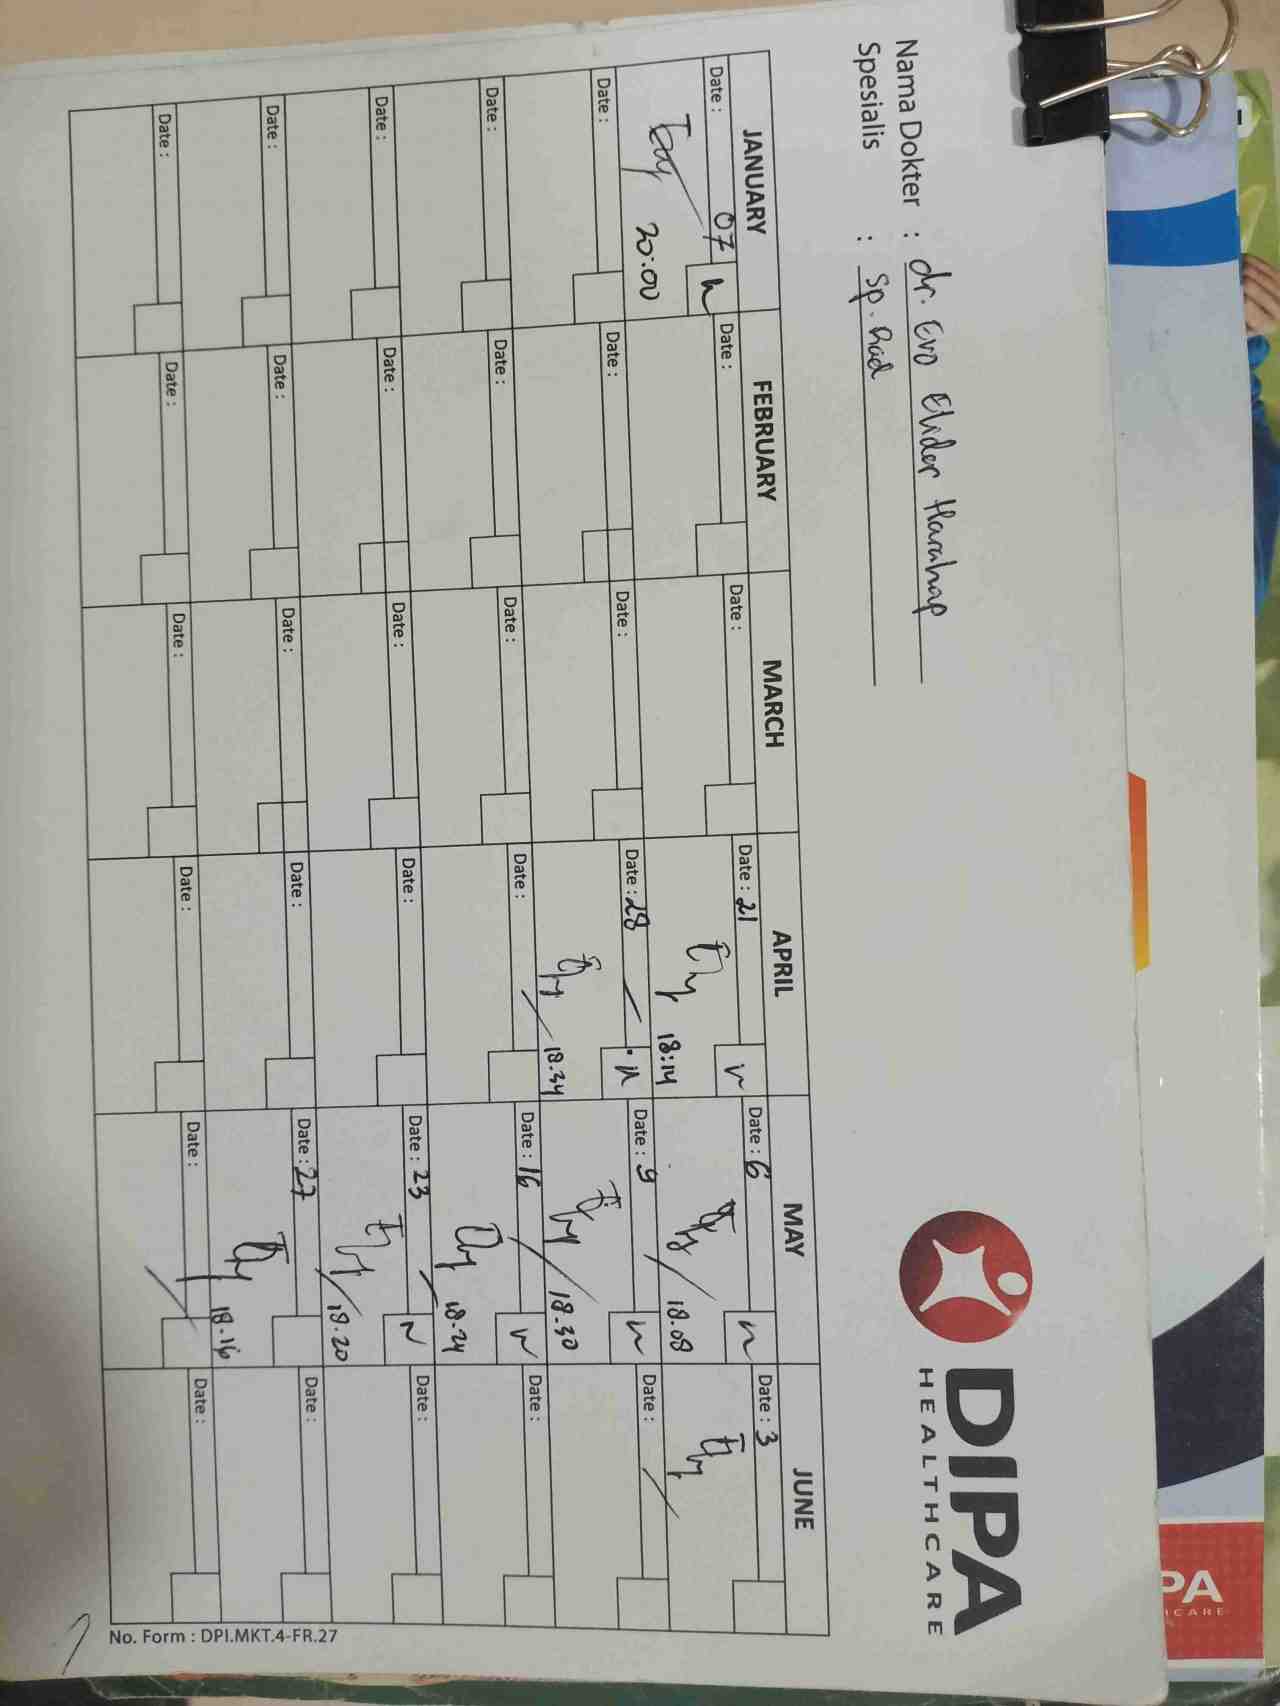 Nama Dokter : dr. Evo Elidar Harahap
Spesialis : Sp. Rad
DIPA
HEALTHCARE
JANUARY FEBRUARY MARCH APRIL MAY JUNE
Date : 07 Date : Date : Date : 21 Date : 6 Date : 3
20:00 18:14 18.08
Date : Date : Date : Date : 28 Date : 9 Date :
18.34 18.30
Date : Date : Date : Date : Date : 16 Date :
18.24
Date : Date : Date : Date : Date : 23 Date :
18.20
Date : Date : Date : Date : Date : 27 Date :
18.16
Date : Date : Date : Date : Date : Date :
No. Form : DPI.MKT.4-FR.27
PA
ICARE